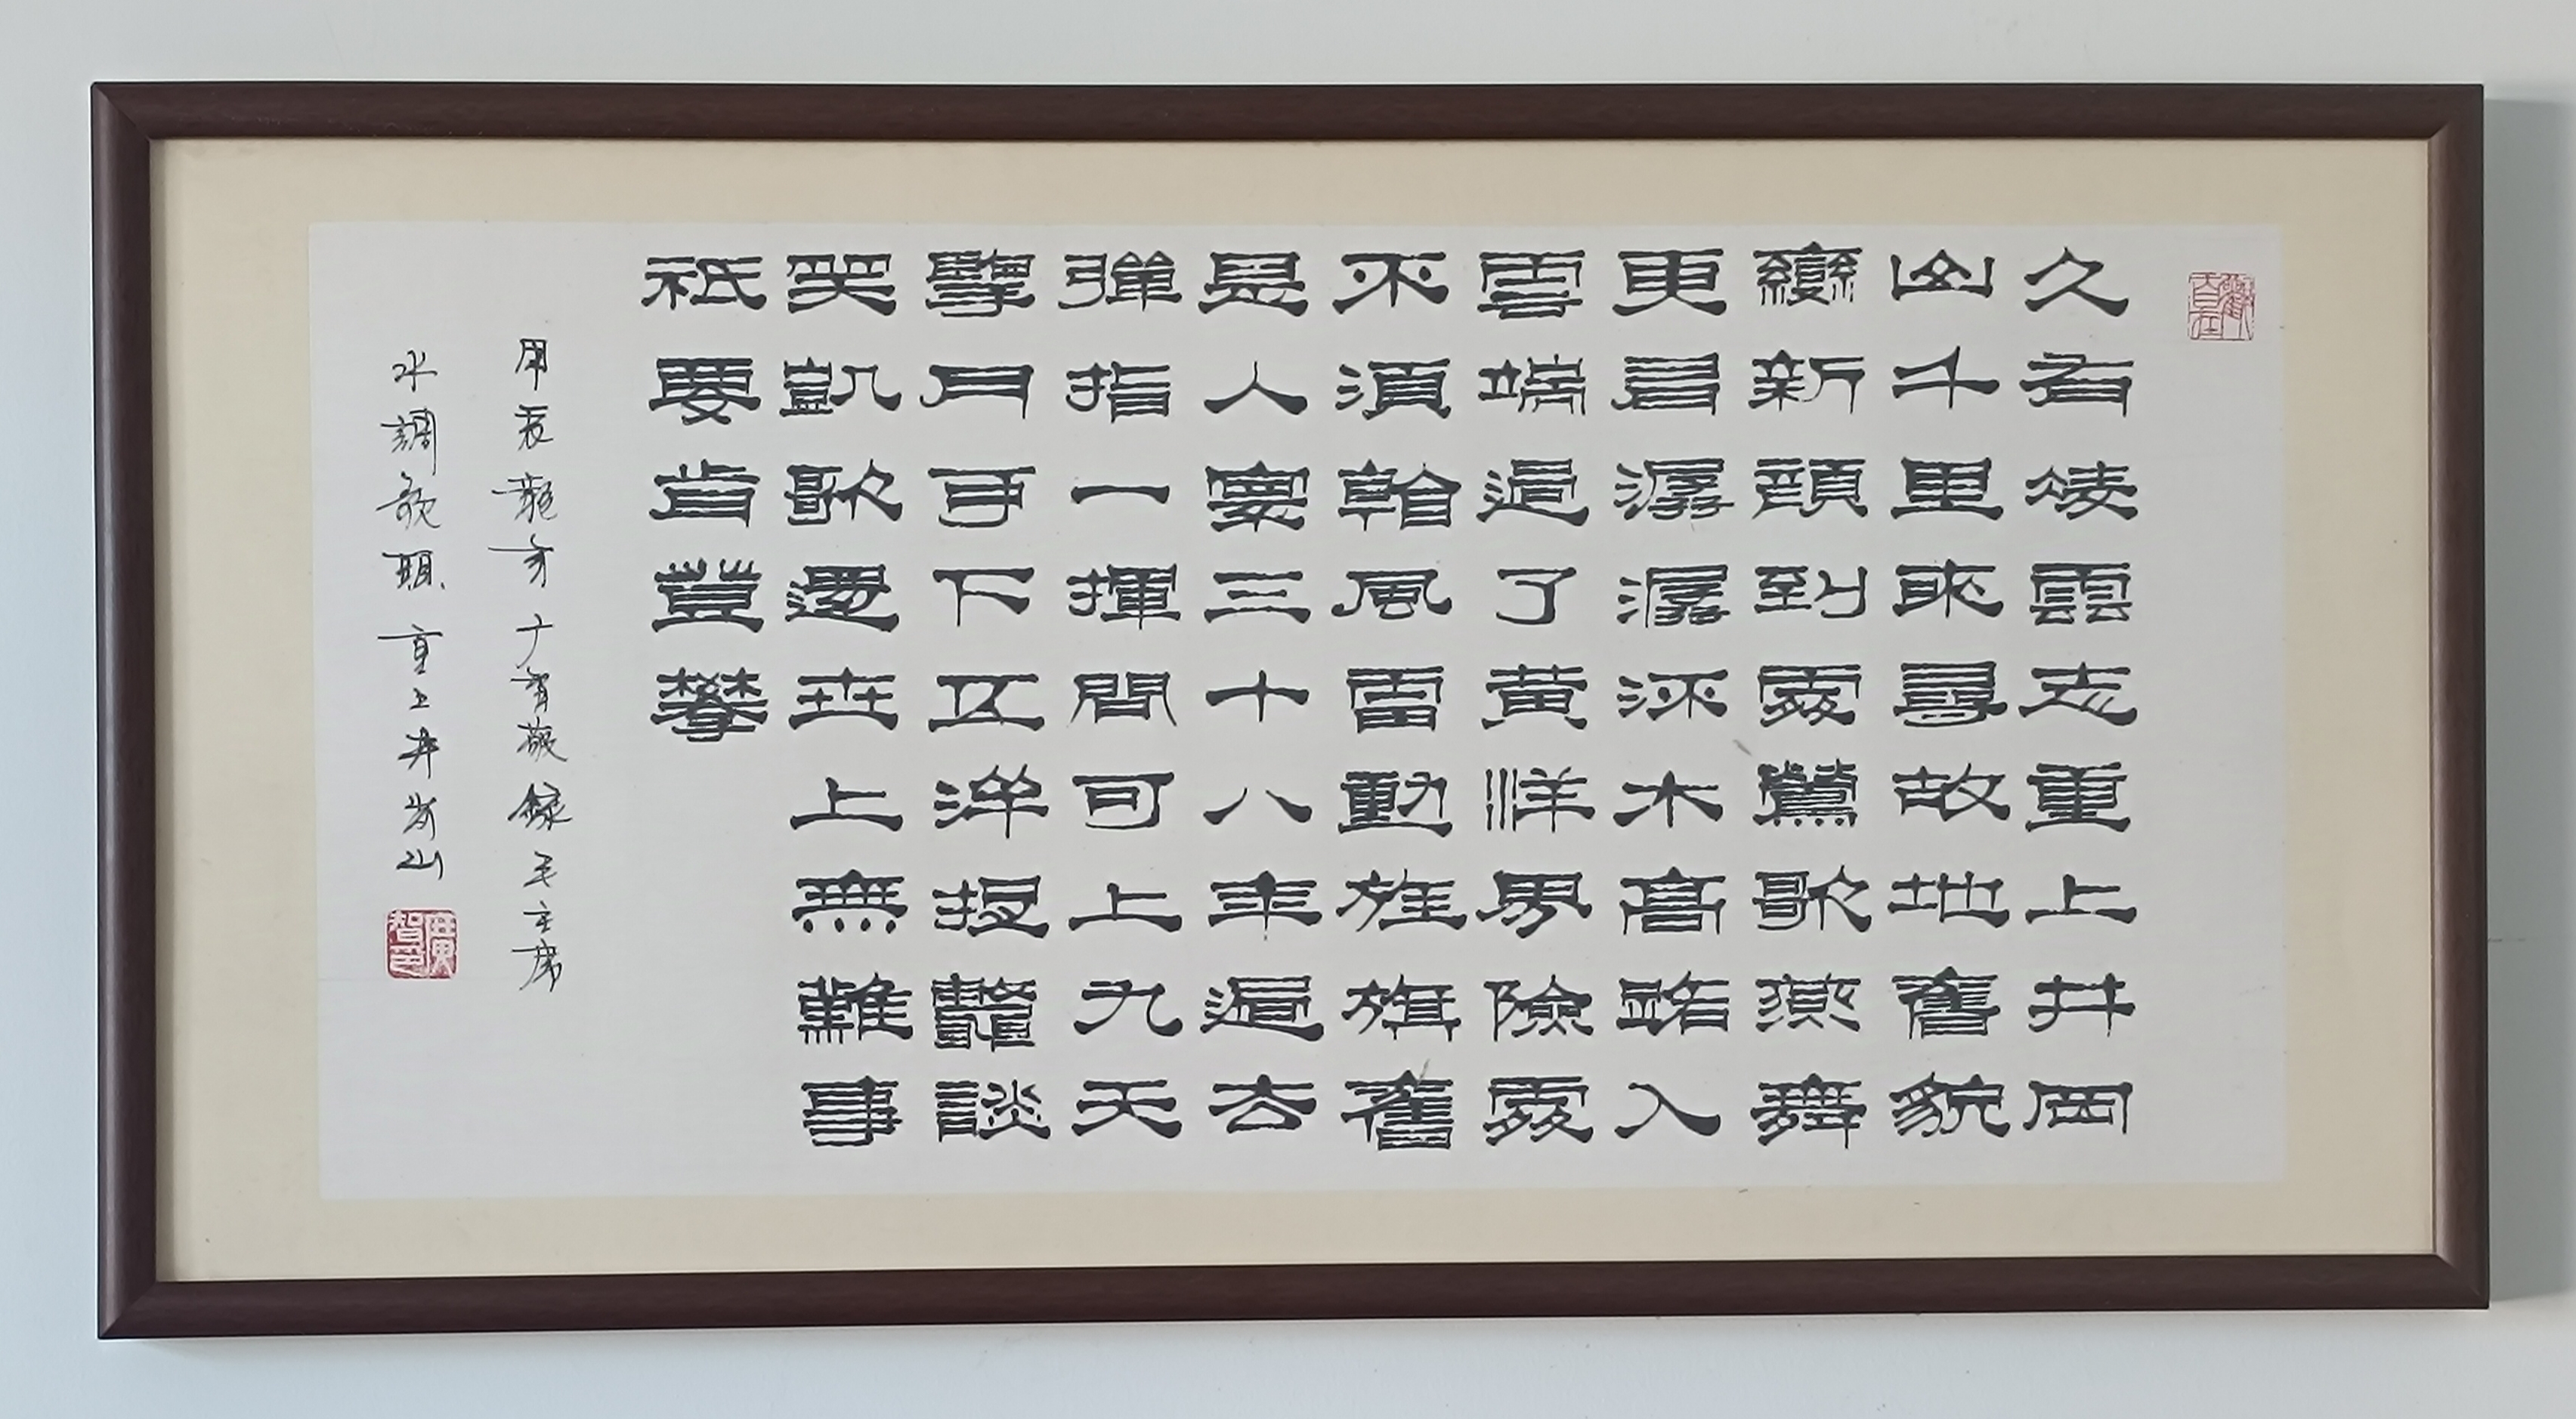 觀自在
久有凌雲志重上井岡
山千里來尋故地舊貌
變新顏到處鶯歌燕舞
更有潺潺流水高路入
雲端過了黃洋界險處
不須看風雷動旌旗奮
是人寰三十八年過去
彈指一揮間可上九天
攬月可下五洋捉鱉談
笑凱歌還世上無難事
祇要肯登攀
甲辰龍年广智敬録毛主席
水調歌頭重上井岡山
廣智印